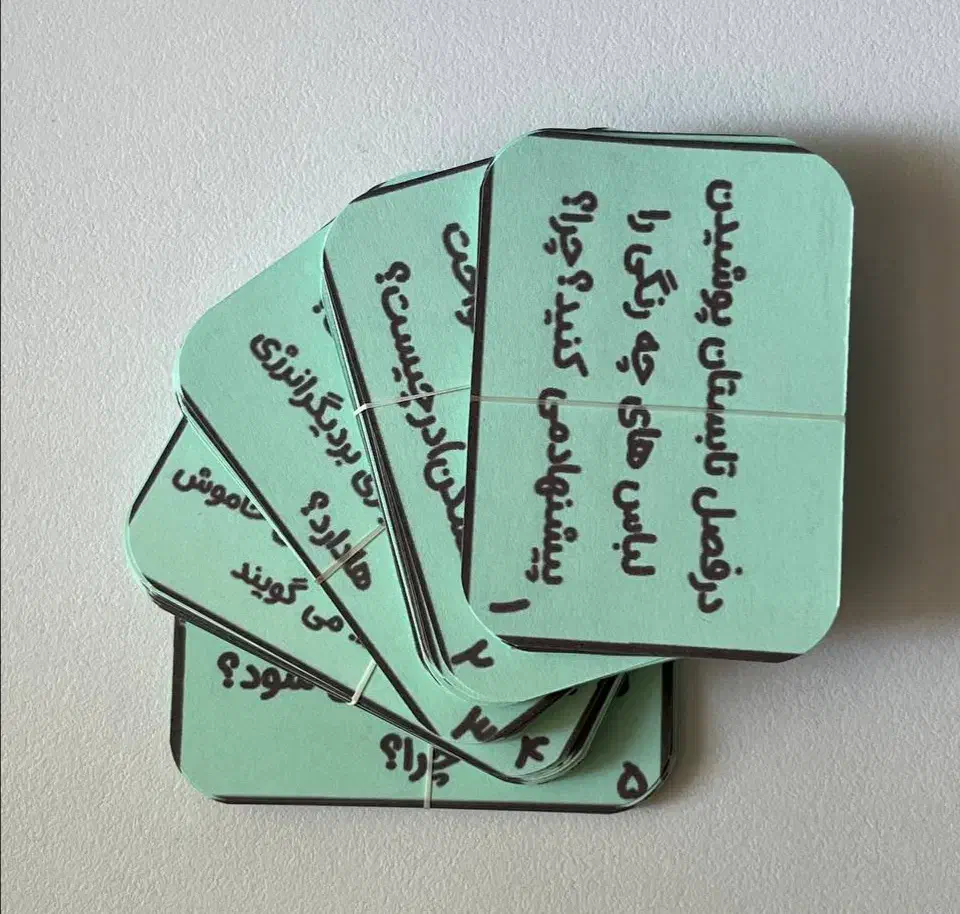 درفصل تابستان پوشیدن
لباس های چه رنگی را
پیشنهادمی کنید؟ چرا؟
۱
درچیست؟
۲
بردیگرانرژی
هادارد؟
۳
خاموش
می گویند
۴
چرا؟
۵